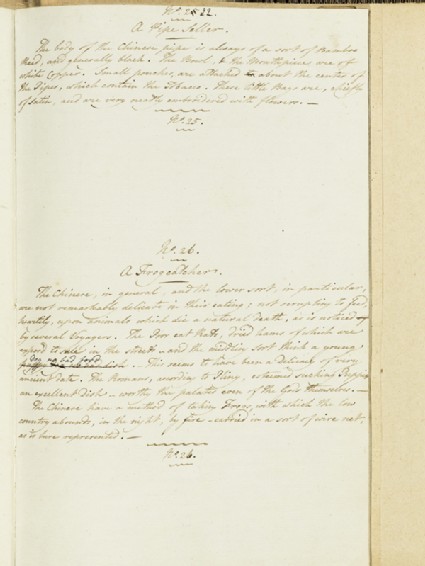 No. 22.
A Pipe Seller.
The body of the Chinese pipe is always of a sort of Bamboo
Reed, and generally black. The Bowl, & the Mouthpieces are of
white Copper. Small pouches, are attached to about the center of
the Pipes, which contain the Tobacco. These little Bags are, chiefly
of Satin, and are very neatly embroidered with flowers. —
No. 25.
No. 26.
A Frogcatcher.
The Chinese, in general, and the lower sort, in particular,
are not remarkably delicate in their eating; not scrupling to feed
heartily, upon Animals which die a natural death, as is noticed
by several Voyagers. The Poor eat Rats, dried hams of which are
exposed to sale in the street — and the middling sort think a young
Dog no bad food. This seems to have been a Delicacy of very
ancient date. The Romans, according to Pliny, esteemed sucking Puppies
an excellent dish — worthy the palates even of the Gods themselves. —
The Chinese have a method of taking Frogs, with which the low
country abounds, in the night, by fire carried in a sort of wire net,
as is here represented. —
No. 26.